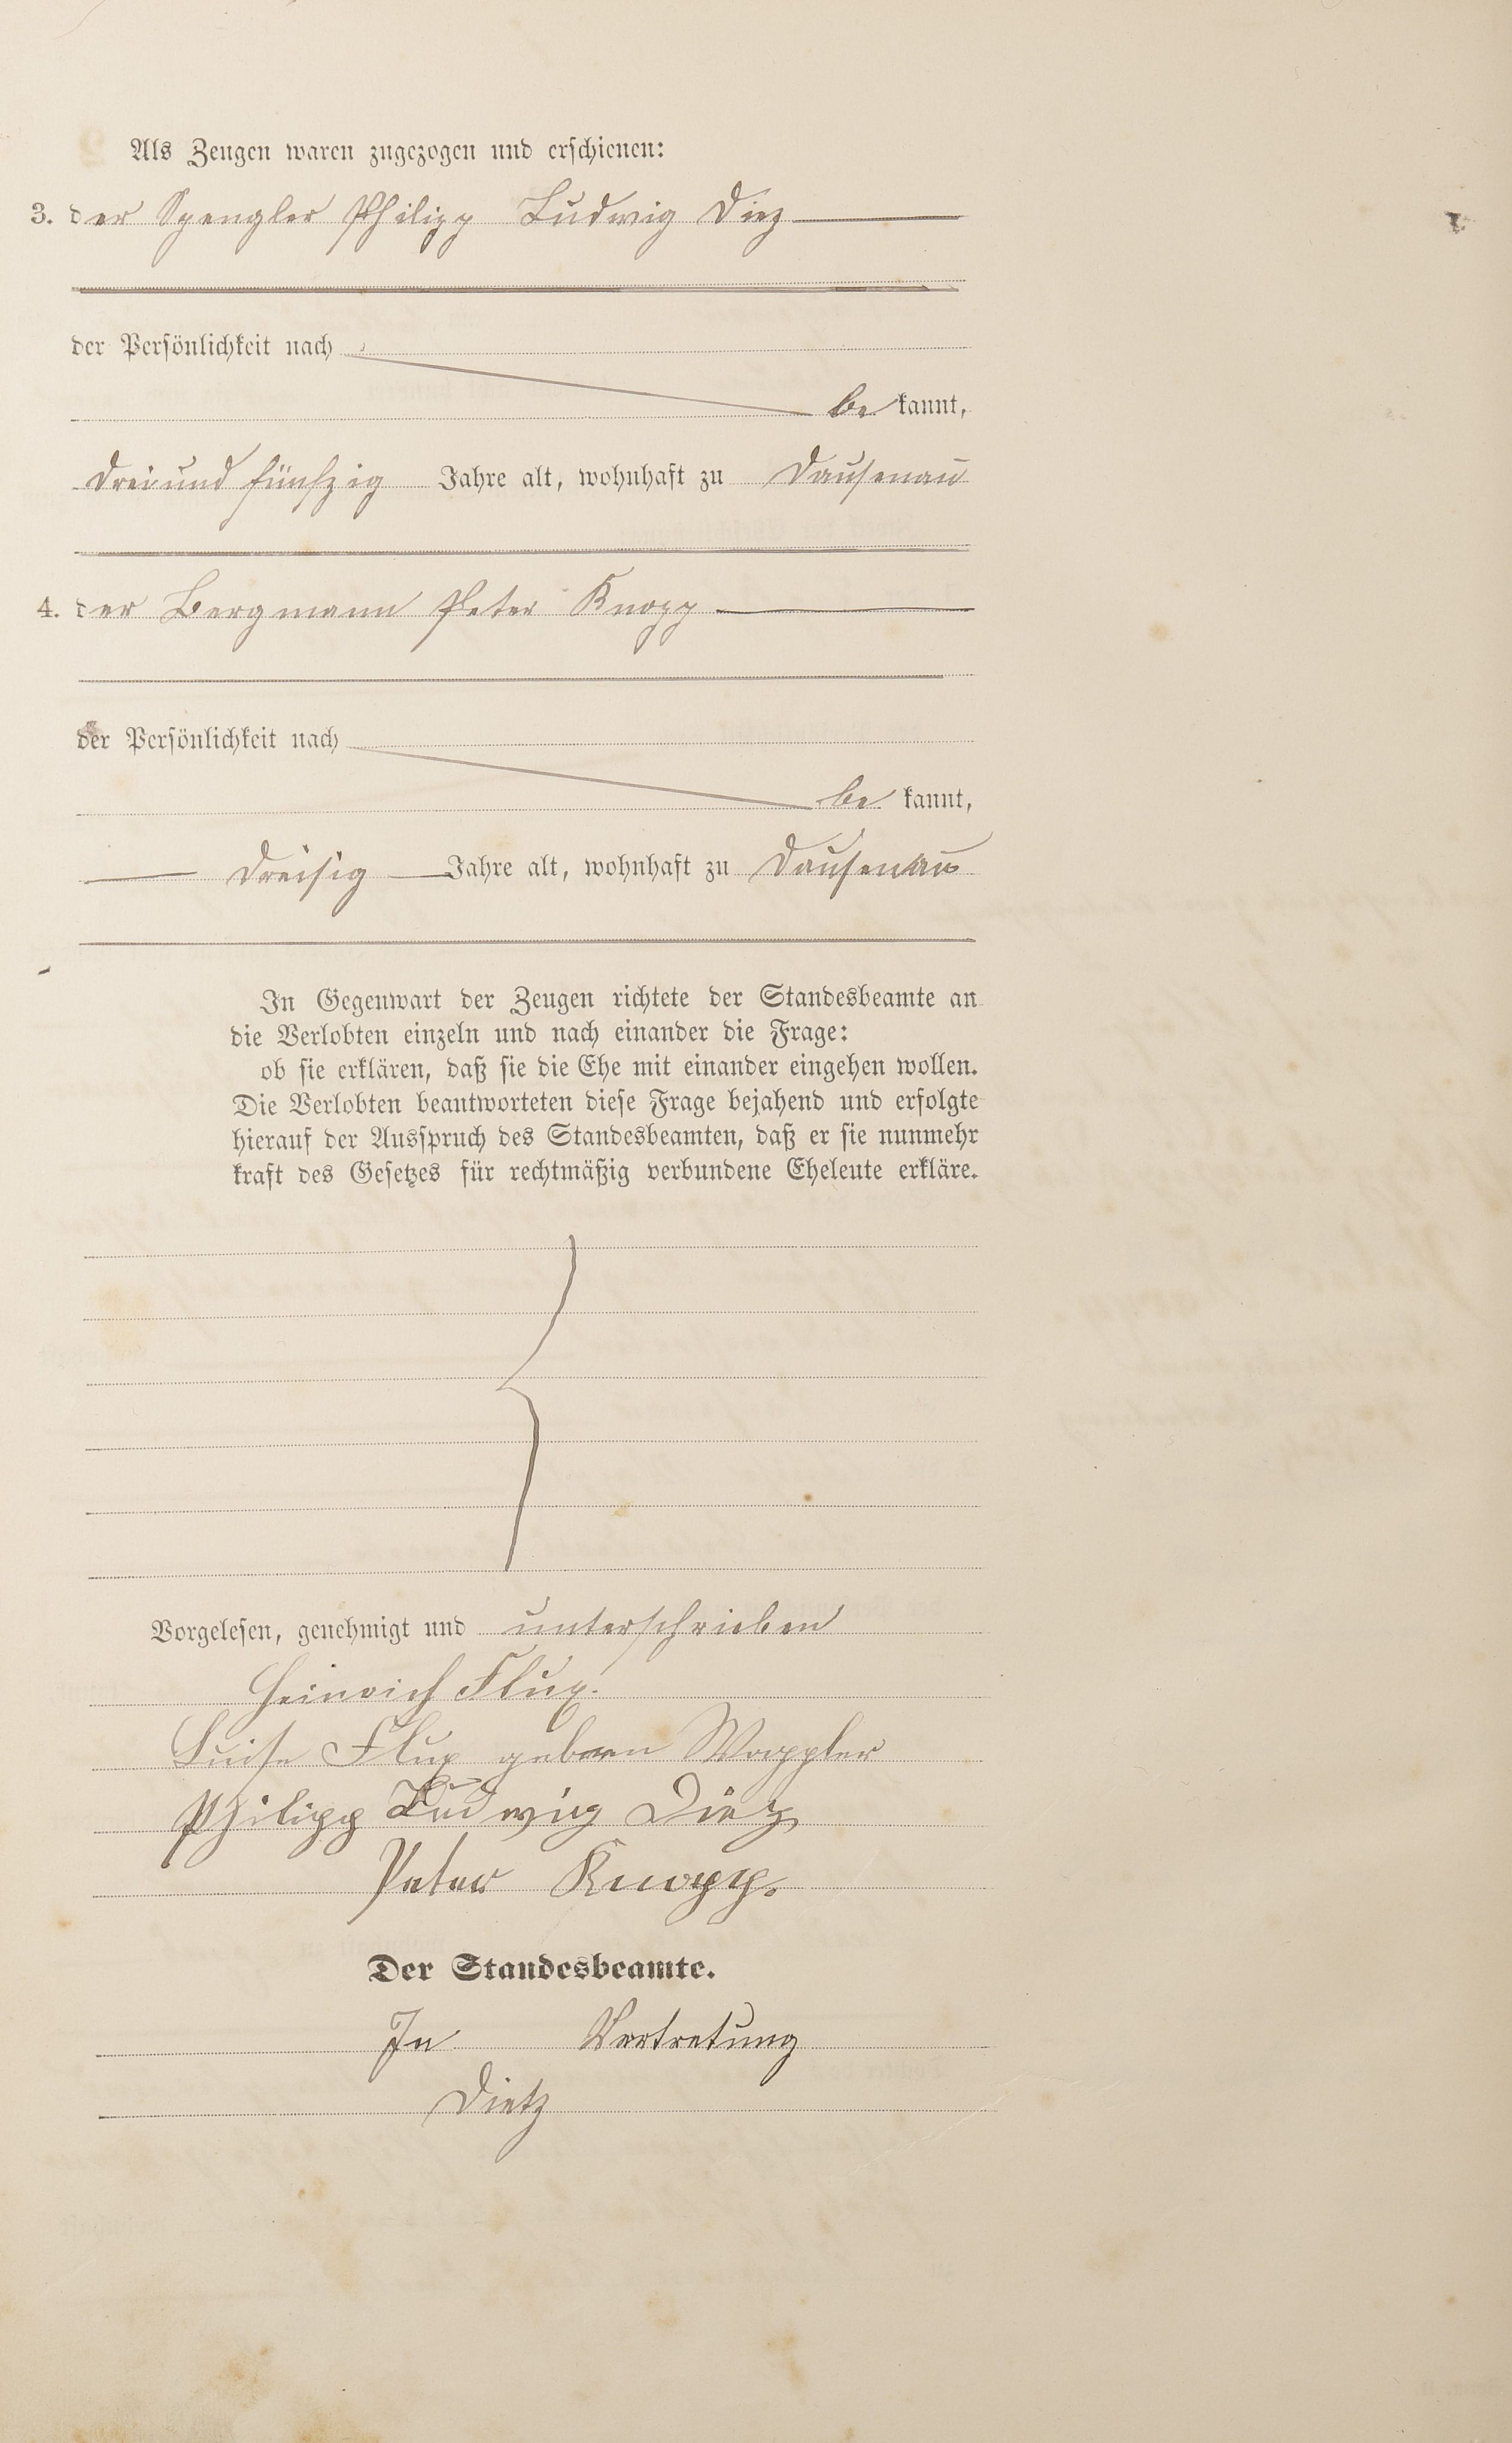 Als Zeugen waren zugezogen und erschienen:
3. der Spengler Philipp Ludwig Diez
der Persönlichkeit nach
be kannt,
dreiund fünfzig Jahre alt, wohnhaft zu Dausenau
4. der Bergmann Peter Knopp
der Persönlichkeit nach
be kannt,
dreisig Jahre alt, wohnhaft zu Dausenau
In Gegenwart der Zeugen richtete der Standesbeamte an
die Verlobten einzeln und nach einander die Frage:
ob sie erklären, daß sie die Ehe mit einander eingehen wollen.
Die Verlobten beantworteten diese Frage bejahend und erfolgte
hierauf der Ausspruch des Standesbeamten, daß er sie nunmehr
kraft des Gesetzes für rechtmäßig verbundene Eheleute erkläre.
Vorgelesen, genehmigt und unterschrieben
Heinrich Flux.
Luise Flux geboren Wappler
Philipp Ludwig Diez
Peter Knopp.
Der Standesbeamte.
In Vertretung
Dietz